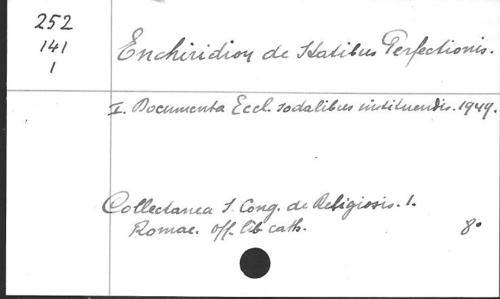 252
141
1
Enchiridion de Statibus Perfectionis.
I. Documenta Eccl. sodalibus instituendis. 1949.
Collectanea S. Cong. de Religiosis. 1.
Romae. Off. lib cath. 8°